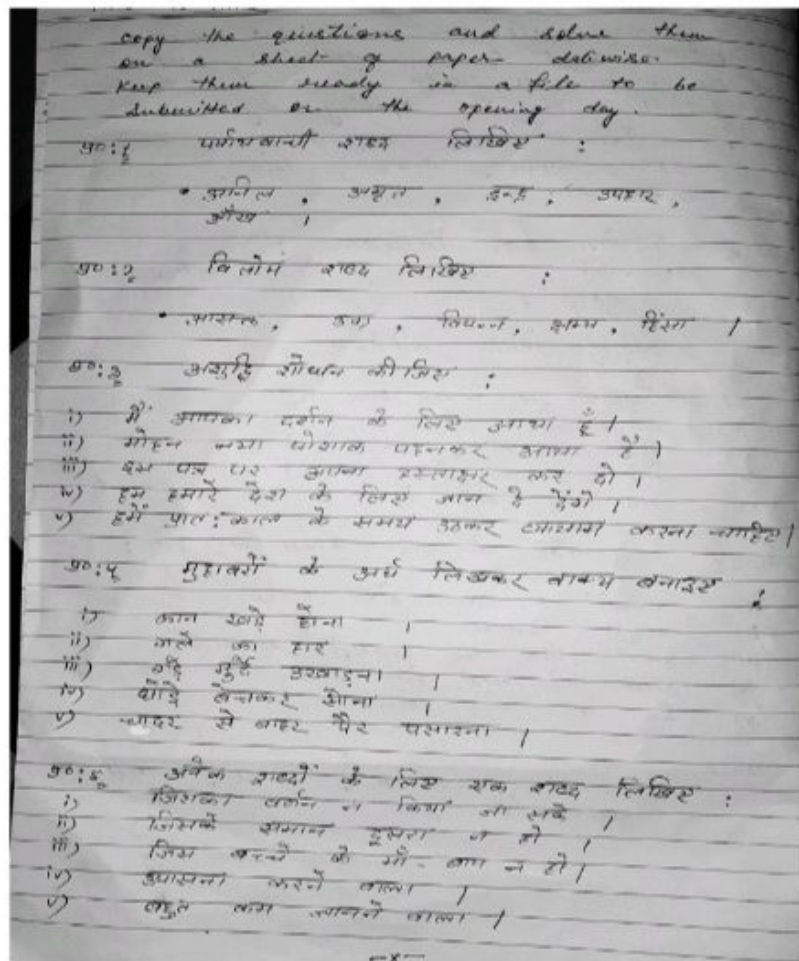 copy the questions and solve them
on a sheet of paper datewise.
Keep them ready in a file to be
submitted on the opening day.
प्र०:१ पर्यायवाची शब्द लिखिए :
• अनिल, अमृत, इन्द्र, उपहार,
आँख ।
प्र०:२ विलोम शब्द लिखिए :
• आसक्त, उग्र, विपन्न, क्षम्य, हिंसा ।
प्र०:३ अशुद्धि शोधन कीजिए :
i) मैं आपका दर्शन के लिए आया हूँ ।
ii) मोहन नया पोशाक पहनकर आया है ।
iii) इस पत्र पर अपना हस्ताक्षर कर दो ।
iv) हम हमारे देश के लिए जान दे देंगे ।
v) हमें प्रात:काल के समय उठकर व्यायाम करना चाहिए ।
प्र०:४ मुहावरों के अर्थ लिखकर वाक्य बनाइए :
i) कान खड़े होना ।
ii) गले का हार ।
iii) गड़े मुर्दे उखाड़ना ।
iv) घोड़े बेचकर सोना ।
v) चादर से बाहर पैर पसारना ।
प्र०:५ अनेक शब्दों के लिए एक शब्द लिखिए :
i) जिसका वर्णन न किया जा सके ।
ii) जिसके समान दूसरा न हो ।
iii) जिस बच्चे के माँ-बाप न हो ।
iv) उपासना करने वाला ।
v) बहुत कम जानने वाला ।
-x-